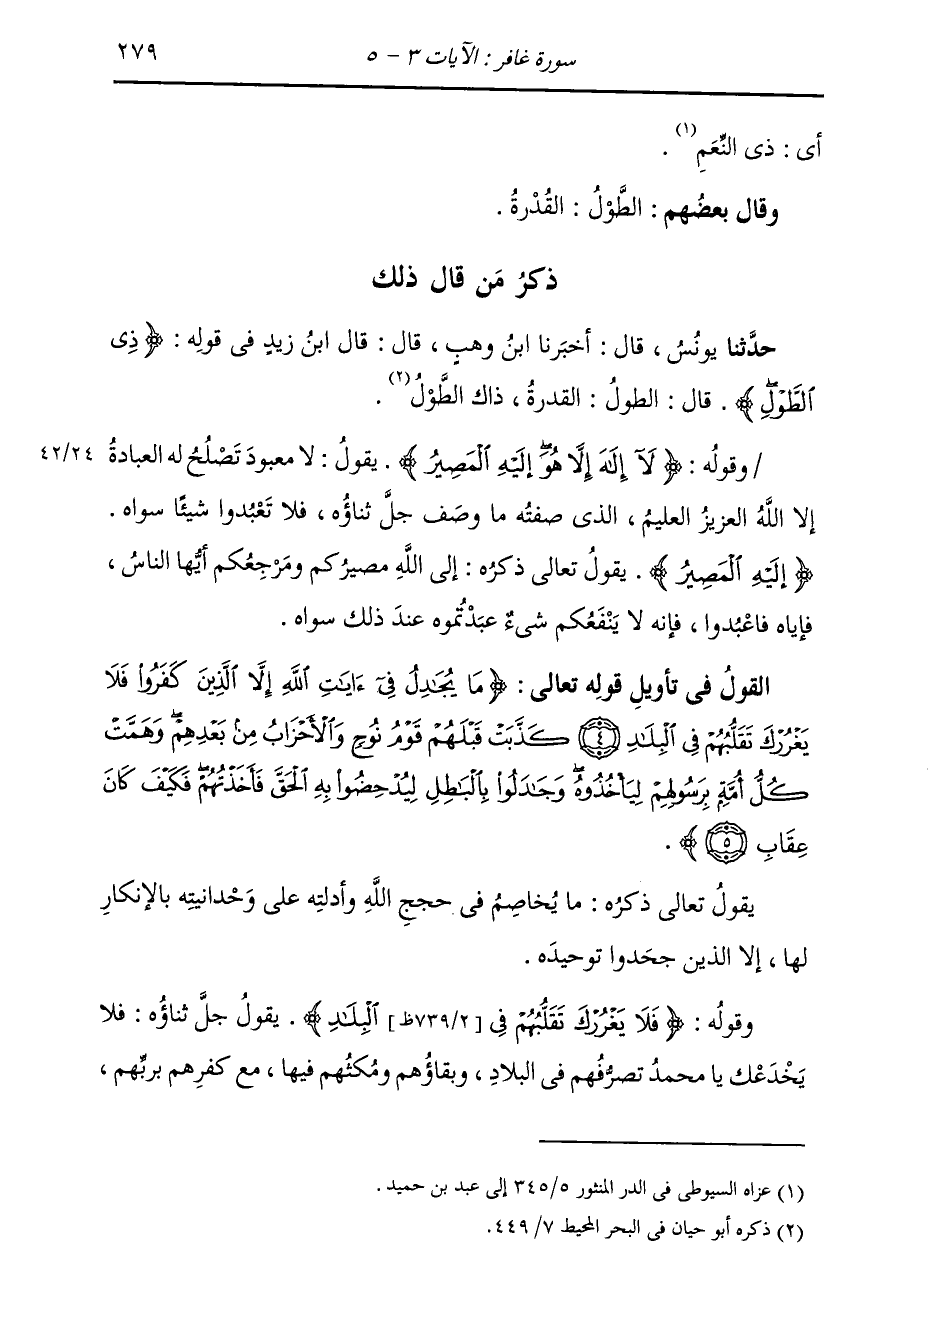 سورة غافر : الآيات ٣ - ٥
٢٧٩
أى : ذى النِّعَمِ(١) .
وقال بعضُهم : الطَّوْلُ : القُدْرةُ .
ذكرُ مَن قال ذلك
حدَّثنا يونُسُ ، قال : أخبَرنا ابنُ وهبٍ ، قال : قال ابنُ زيدٍ فى قولِه : ﴿ ذِى
ٱلطَّوْلِۖ ﴾ . قال : الطولُ : القدرةُ ، ذاك الطَّوْلُ(٢) .
/ وقولُه : ﴿ لَآ إِلَٰهَ إِلَّا هُوَۖ إِلَيْهِ ٱلْمَصِيرُ ﴾ . يقولُ : لا معبودَ تَصْلُحُ له العبادةُ
٤٢/٢٤
إلا اللَّهُ العزيزُ العليمُ ، الذى صفتُه ما وصَف جلَّ ثناؤُه ، فلا تَعْبُدوا شيئًا سواه .
﴿ إِلَيْهِ ٱلْمَصِيرُ ﴾ . يقولُ تعالى ذكرُه : إلى اللَّهِ مصيرُكم ومَرْجِعُكم أيُّها الناسُ ،
فإياه فاعْبُدوا ، فإنه لا يَنْفَعُكم شىءٌ عبَدْتُموه عندَ ذلك سواه .
القولُ فى تأويلِ قولِه تعالى : ﴿ مَا يُجَٰدِلُ فِىٓ ءَايَٰتِ ٱللَّهِ إِلَّا ٱلَّذِينَ كَفَرُوا۟ فَلَا
يَغْرُرْكَ تَقَلُّبُهُمْ فِى ٱلْبِلَٰدِ ٤ كَذَّبَتْ قَبْلَهُمْ قَوْمُ نُوحٍ وَٱلْأَحْزَابُ مِنۢ بَعْدِهِمْۖ وَهَمَّتْ
كُلُّ أُمَّةٍۭ بِرَسُولِهِمْ لِيَأْخُذُوهُۖ وَجَٰدَلُوا۟ بِٱلْبَٰطِلِ لِيُدْحِضُوا۟ بِهِ ٱلْحَقَّ فَأَخَذْتُهُمْۖ فَكَيْفَ كَانَ
عِقَابِ ٥ ﴾ .
يقولُ تعالى ذكرُه : ما يُخاصِمُ فى حججِ اللَّهِ وأدلتِه على وَحْدانيتِه بالإنكارِ
لها ، إلا الذين جحَدوا توحيدَه .
وقولُه : ﴿ فَلَا يَغْرُرْكَ تَقَلُّبُهُمْ فِى [٧٣٩/٢ظ] ٱلْبِلَٰدِ ﴾ . يقولُ جلَّ ثناؤُه : فلا
يَخْدَعْك يا محمدُ تصرُّفُهم فى البلادِ ، وبقاؤُهم ومُكثُهم فيها ، مع كفرِهم بربِّهم ،
(١) عزاه السيوطى فى الدر المنثور ٣٤٥/٥ إلى عبد بن حميد .
(٢) ذكره أبو حيان فى البحر المحيط ٧/ ٤٤٩.